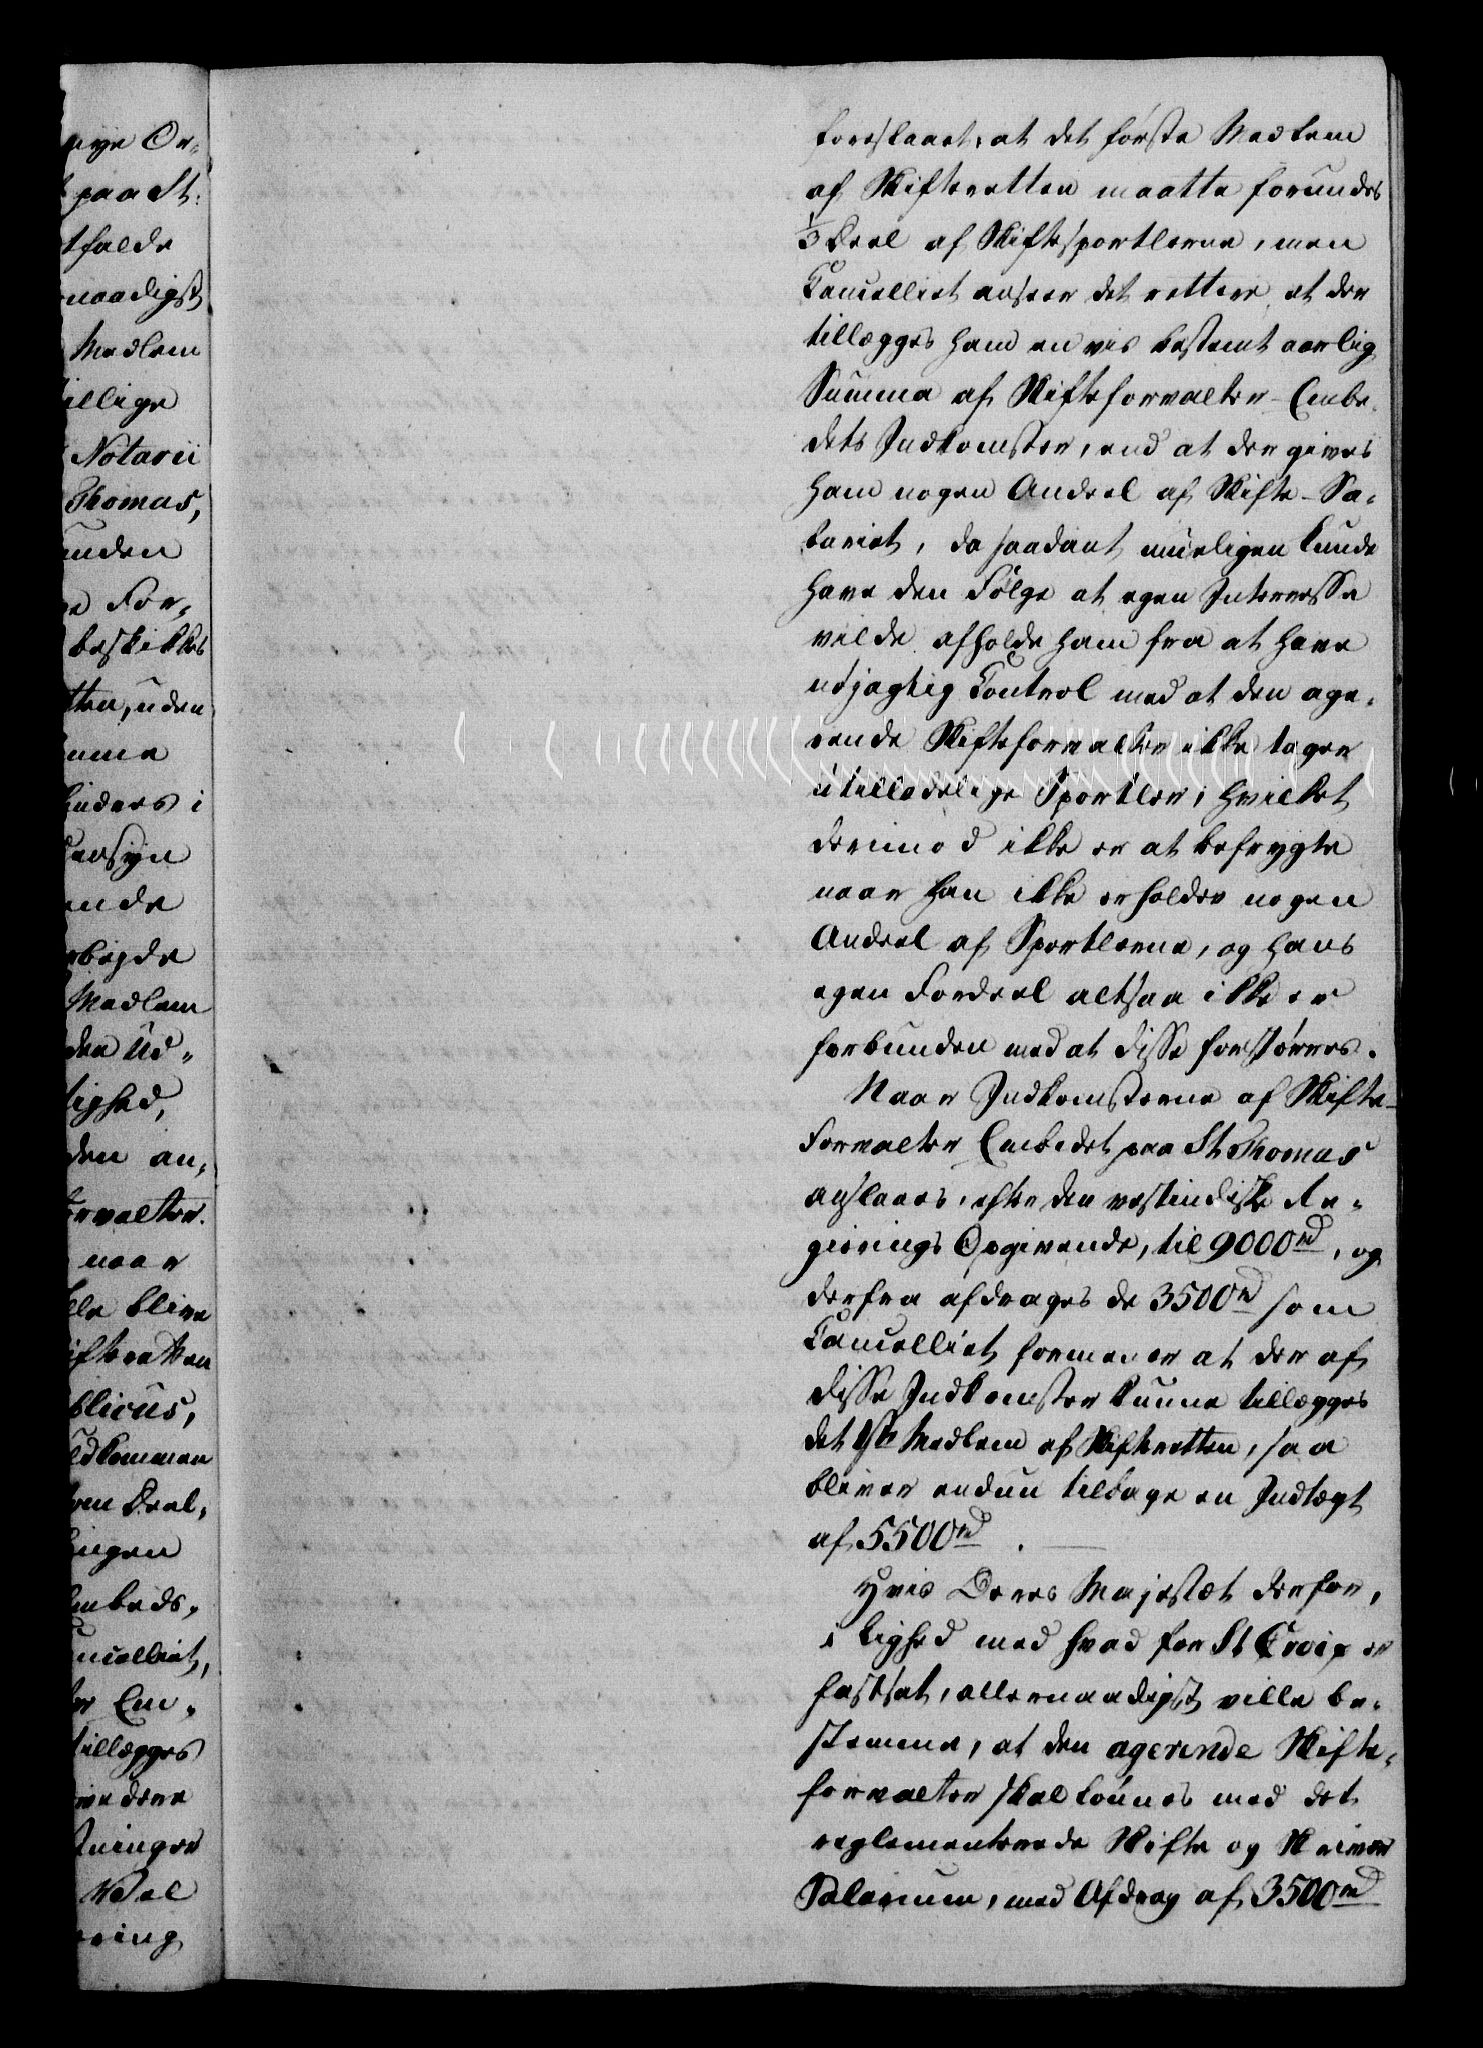 nye Or-
paa St:
tfalde
naadigst
Medlem
tillige
Notarii
Thomas,
unden
For-
beskikkes
tten, uden
amme
hindres i
densyn
ende
rbejde
Medlem
den Ud-
tighed,
den an-
orvalter.
naar
lle blive
ifteretten
blicus,
uldkommen
om Deel-
ingen
mbeds-
ncelliet,
Em-
tillægges
vedere
tninger
Deel
ring
foreslaaet, at det første Medlem
af Skifteretten maatte forundes
1/3 Deel af Skiftesportlerne, men
Cancelliet anseer det rettere, at der
tillægges ham en vis bestemt aarlig
Summa af Skifteforvalter-Embe-
dets Indkomster, end at der gives
ham nogen Andeel af Skifte-Sa-
lariet, da saadant mueligen kunde
have den Følge at egen Interesse
vilde afholde ham fra at have
nøjagtig Control med at den age-
rende Skifteforvalter ikke tager
utilladelige Sportler, hvilket
derimod ikke er at befrygte
naar han ikke erholder nogen
Andeel af Sportlerne, og hans
egen Fordeel altsaa ikke er
forbunden med at disse forstørres.
Naar Indkomsterne af Skifte-
forvalter Embedet paa St Thomas
anslaaes, efter den vestindiske Re-
gierings Opgivende, til 9000rd, og
derfra afdrages de 3500rd som
Cancelliet formener at der af
disse Indkomster kunne tillægges
det 1ste Medlem af Skifteretten, saa
bliver endnu tilbage en Indtægt
af 5500rd.
Hvis Deres Majestæt derfor,
i Lighed med hvad for St Croix er
fastsat, allernaadigst ville be-
stemme, at den agerende Skifte-
forvalter skal lønnes med det
reglementerede Skifte og Skriver
Salarium, med Afdrag af 3500rd